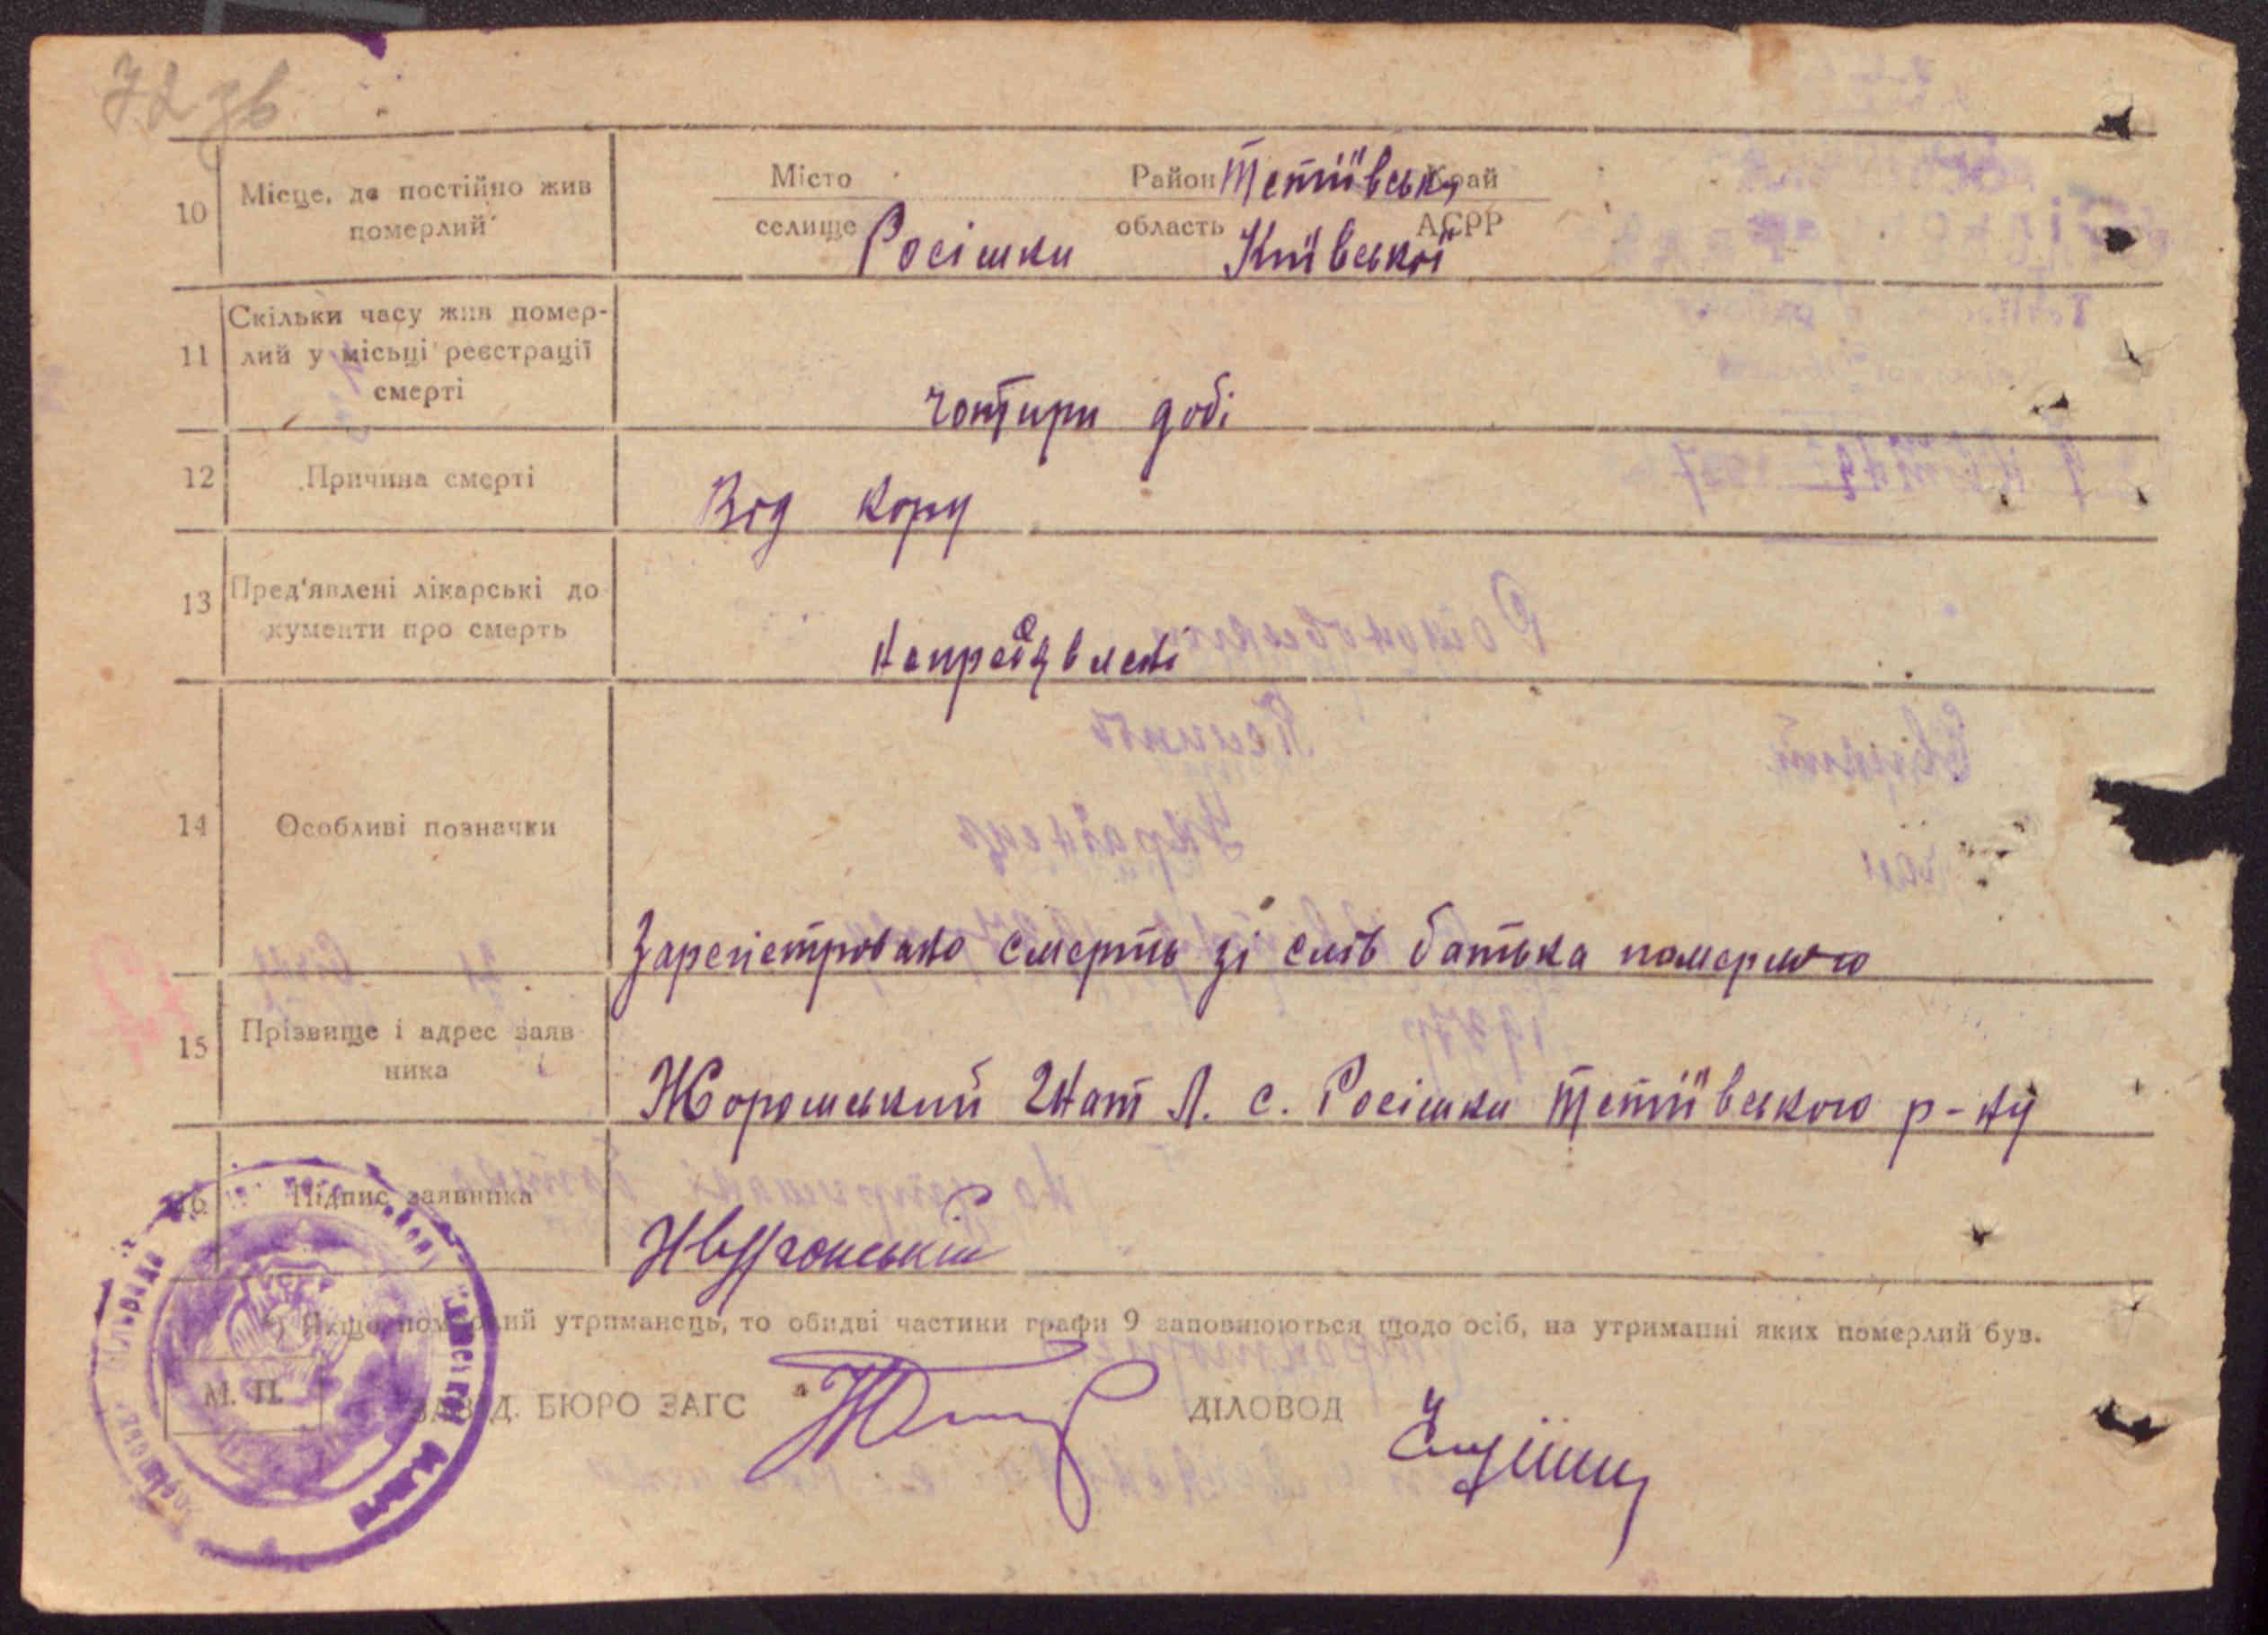 72 зв
10 Місце, де постійно жив померлий
Місто Район Тетіївськ Край
селище Росішки область Київської АСРР
11 Скільки часу жив помер-
лий у місьці реєстрації
смерті
чотири добі
12 Причина смерті
Від кору
13 Пред'явлені лікарські до
кументи про смерть
14 Особливі позначки
Зарегістровано смерть зі слів батька померлого
15 Прізвище і адрес заяв
ника
Гнат Л. с. Росішки Тетіївського р-ну
16 Підпис заявника
*) Якщо померлий утриманець, то обидві частини графи 9 заповнюються щодо осіб, на утриманні яких померлий був.
М. П.
ЗАВІД. БЮРО ЗАГС ДІЛОВОД